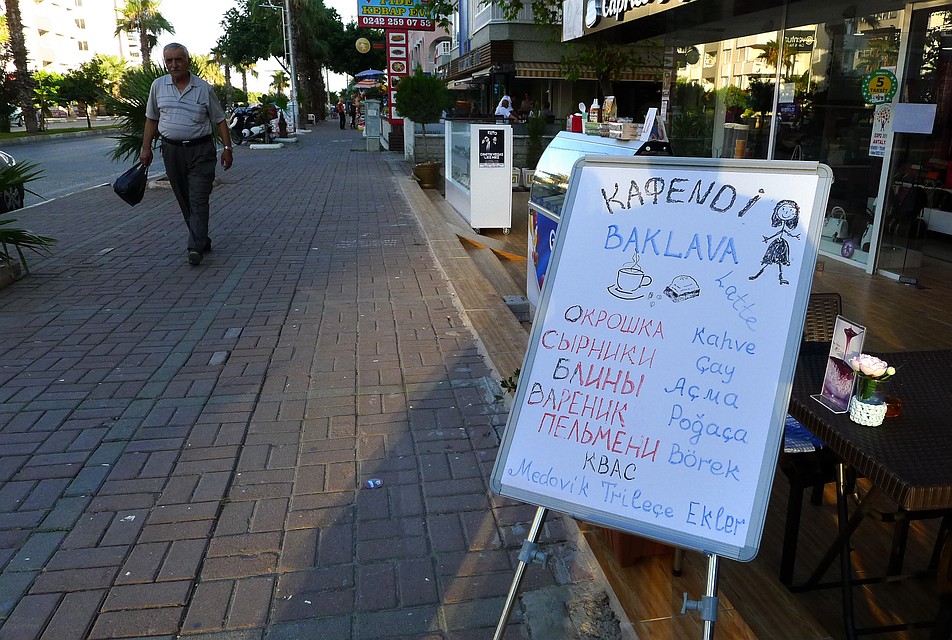 KEBAP EVİ
0242 259 07 53
КАФENDİ
BAKLAVA
Latte
ОКРОШКА
СЫРНИКИ
БЛИНЫ
ВАРЕНИК
ПЕЛЬМЕНИ
КВАС
Kahve
Çay
Açma
Poğaça
Börek
Medovik Trileçe Ekler
5